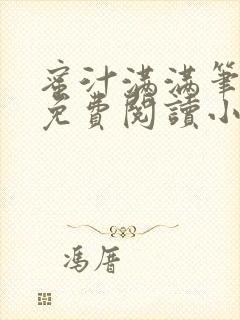 蜜汁满满笔
免費閱讀小
馮厝